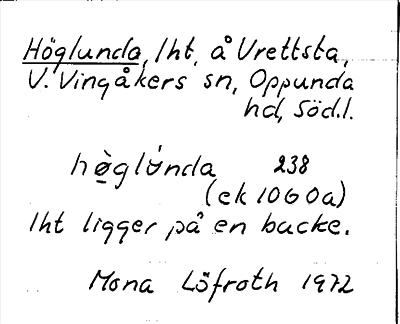 Höglunda, lht, å Vrettsta,
V. Vingåkers sn, Oppunda
hd, Söd.l.
hö̀glúnda 238
(ek 1060a)
lht ligger på en backe.
Mona Löfroth 1972